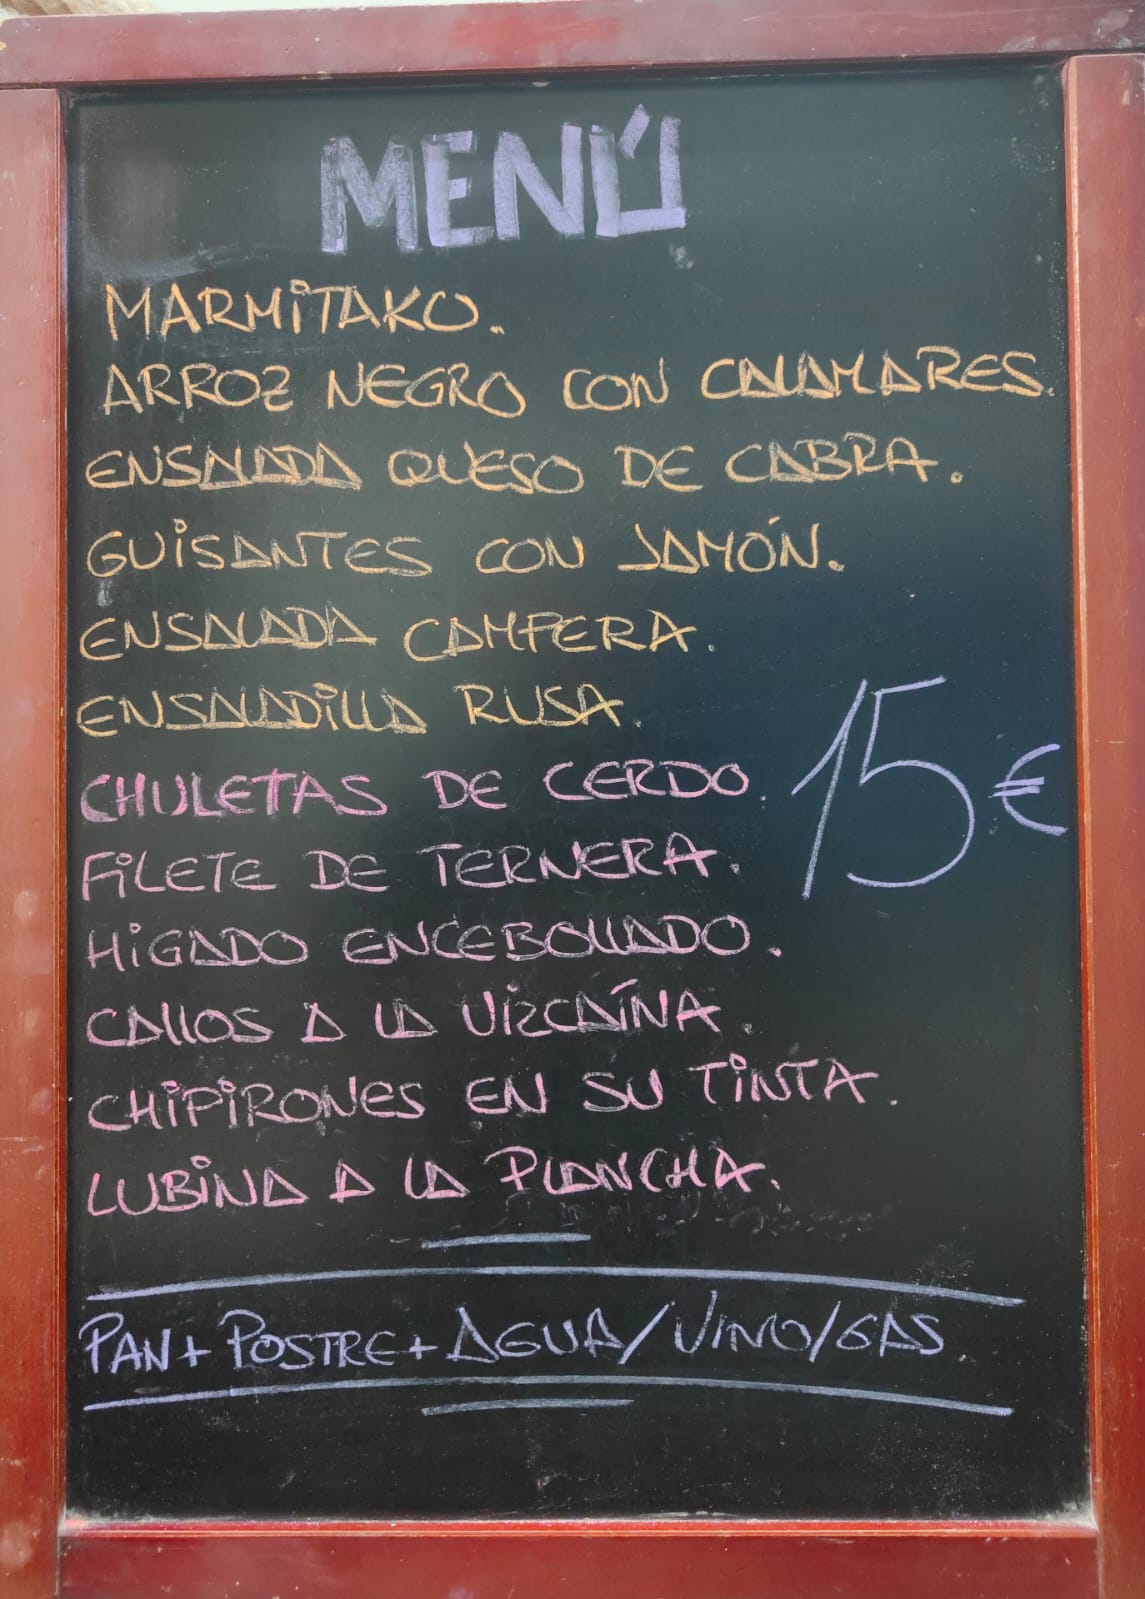 MENÚ
MARMITAKO.
ARROZ NEGRO CON CALAMARES.
ENSALADA QUESO DE CABRA.
GUISANTES CON JAMÓN.
ENSALADA CAMPERA.
ENSALADILLA RUSA.
15€
CHULETAS DE CERDO.
FILETE DE TERNERA.
HIGADO ENCEBOLLADO.
CALLOS A LA VIZCAÍNA.
CHIPIRONES EN SU TINTA.
LUBINA A LA PLANCHA.
PAN+ POSTRE+ AGUA/VINO/GAS